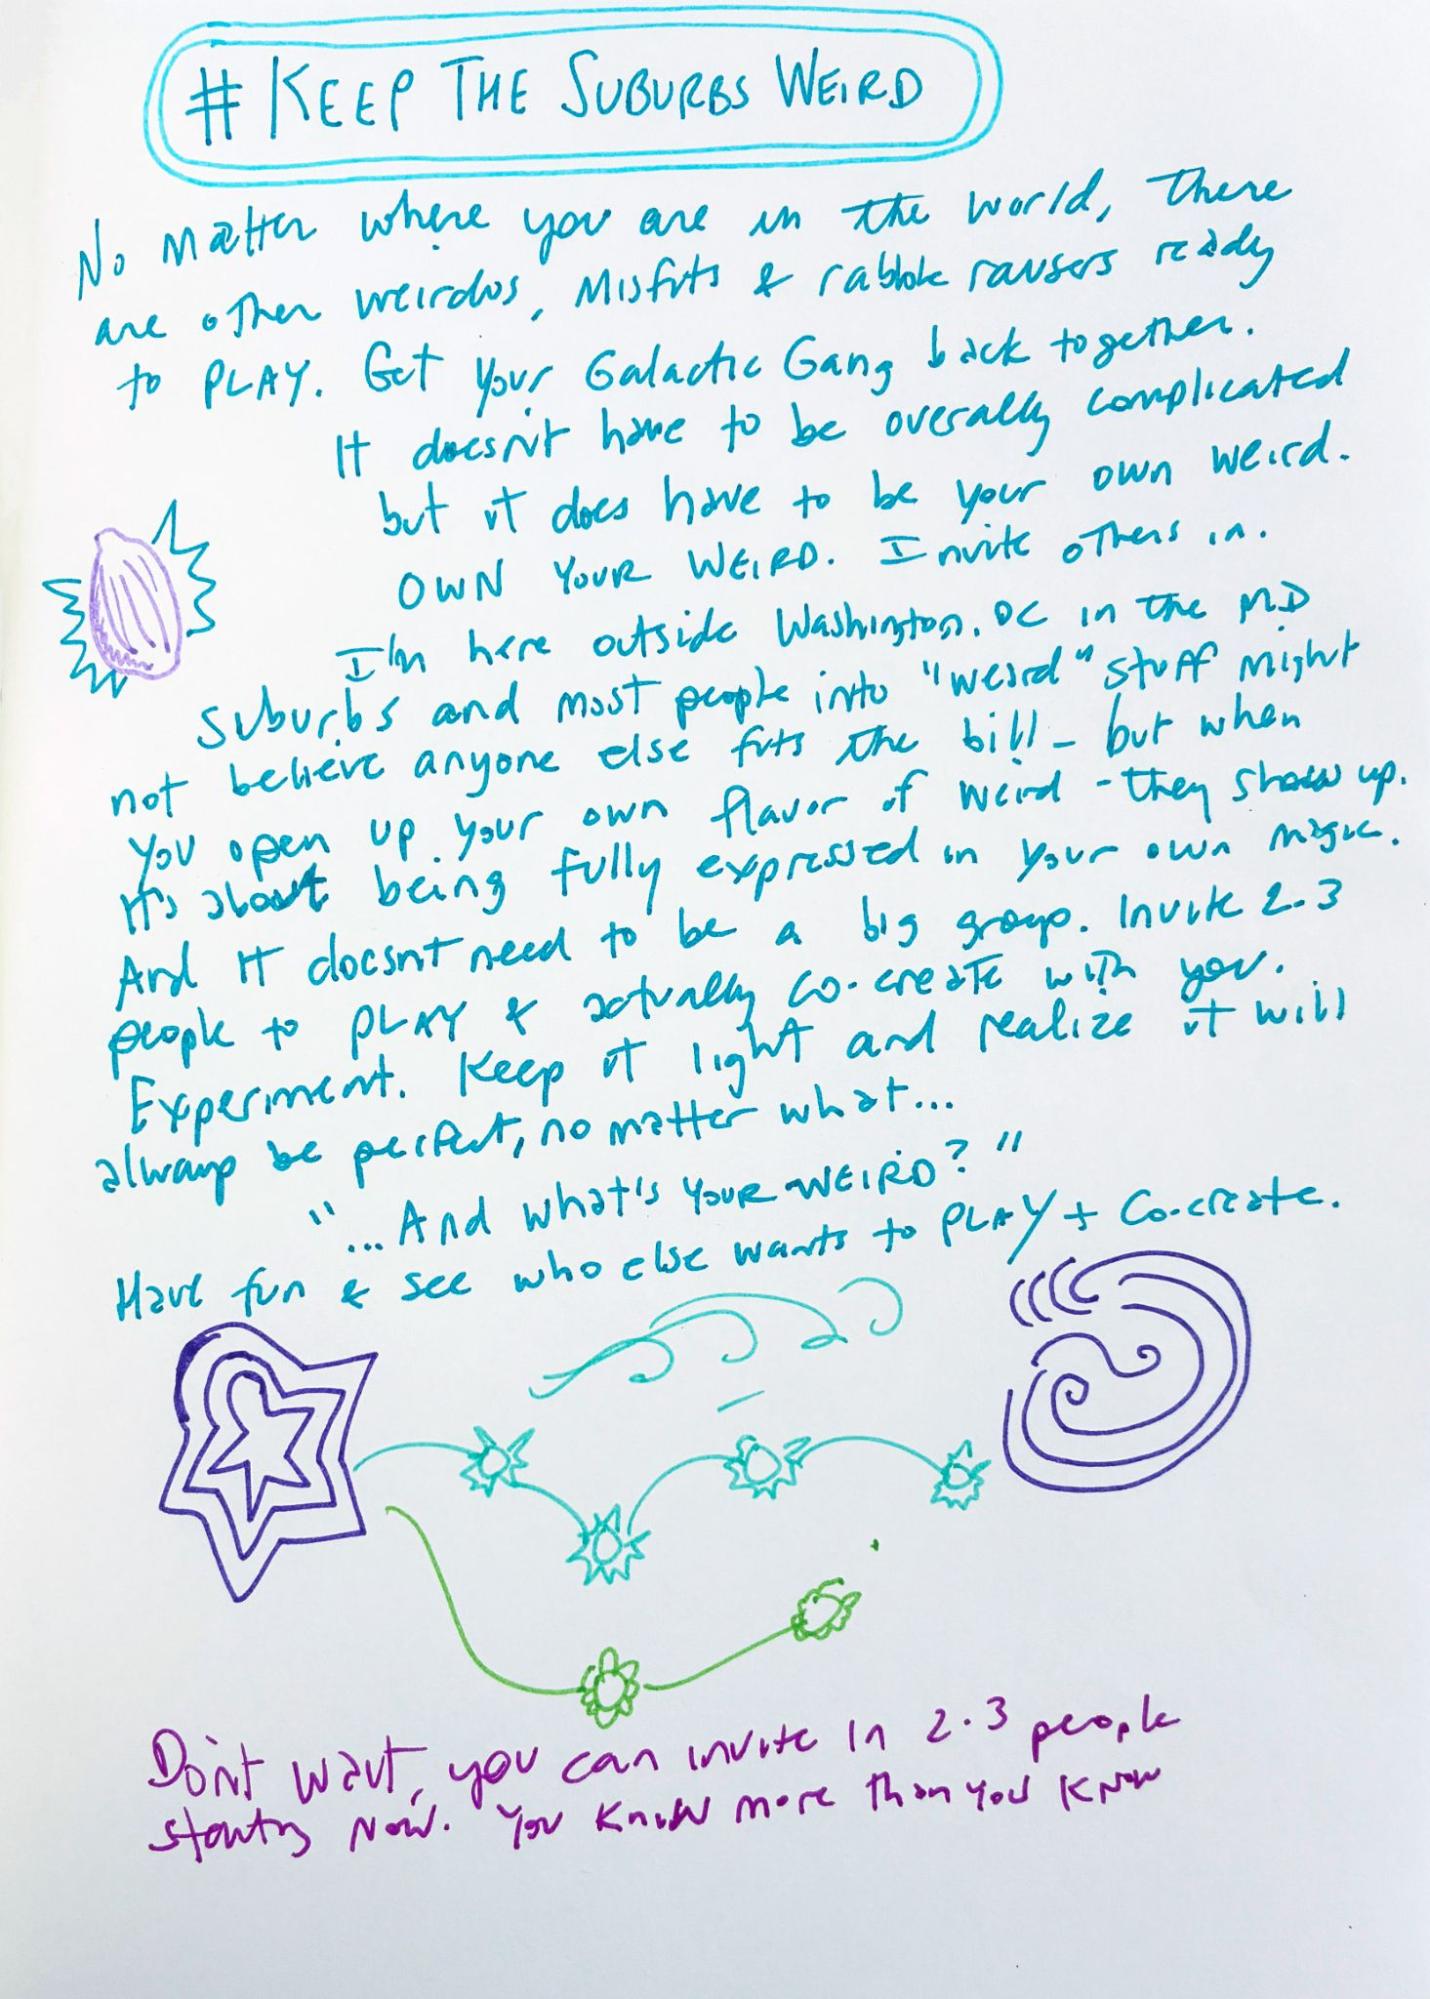 # KEEP THE SUBURBS WEIRD
No matter where you are in the world, there
are other weirdos, Misfits & rabble rausers ready
to PLAY. Get your Galactic Gang back together.
It doesn't have to be overally complicated
but it does have to be your own weird.
OWN YOUR WEIRD. Invite others in.
I'm here outside Washington, DC in the MD
suburbs and most people into "weird" stuff might
not believe anyone else fits the bill - but when
you open up your own flavor of weird - they show up.
It's about being fully expressed in your own magic.
And it doesn't need to be a big group. Invite 2-3
people to PLAY & actually co-create with you.
Experiment. Keep it light and realize it will
always be perfect, no matter what...
"...And what's YOUR WEIRD?"
Have fun & see who else wants to PLAY + Co-create.
Don't wait, you can invite in 2-3 people
starting now. You know more than you know